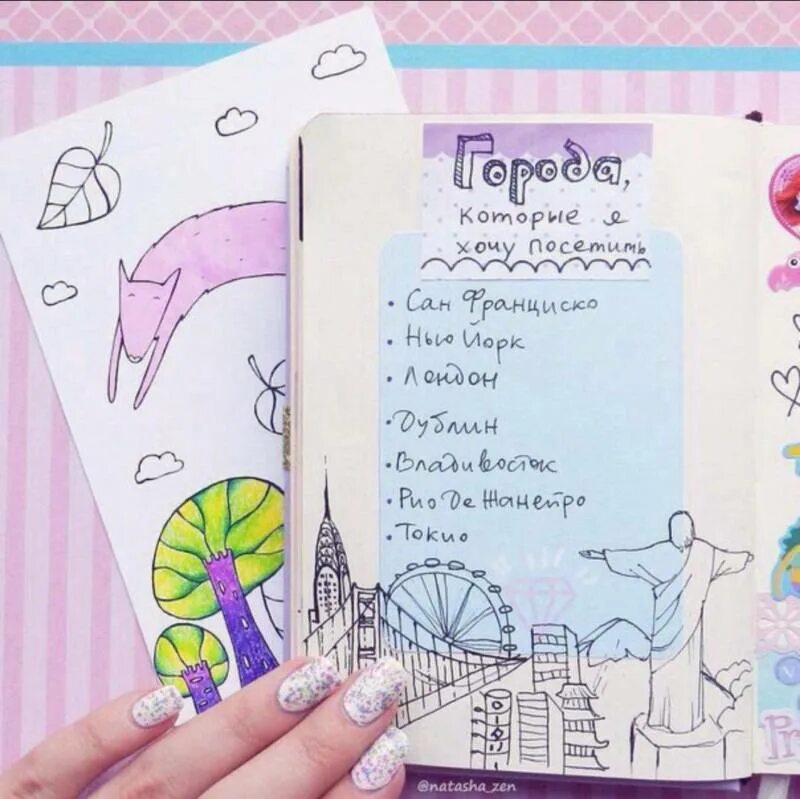 Города,
которые я
хочу посетить
• Сан Франциско
• Нью Йорк
• Лондон
• Дублин
• Владивосток
• Рио Де Жанейро
• Токио
Pr
@natasha_zen